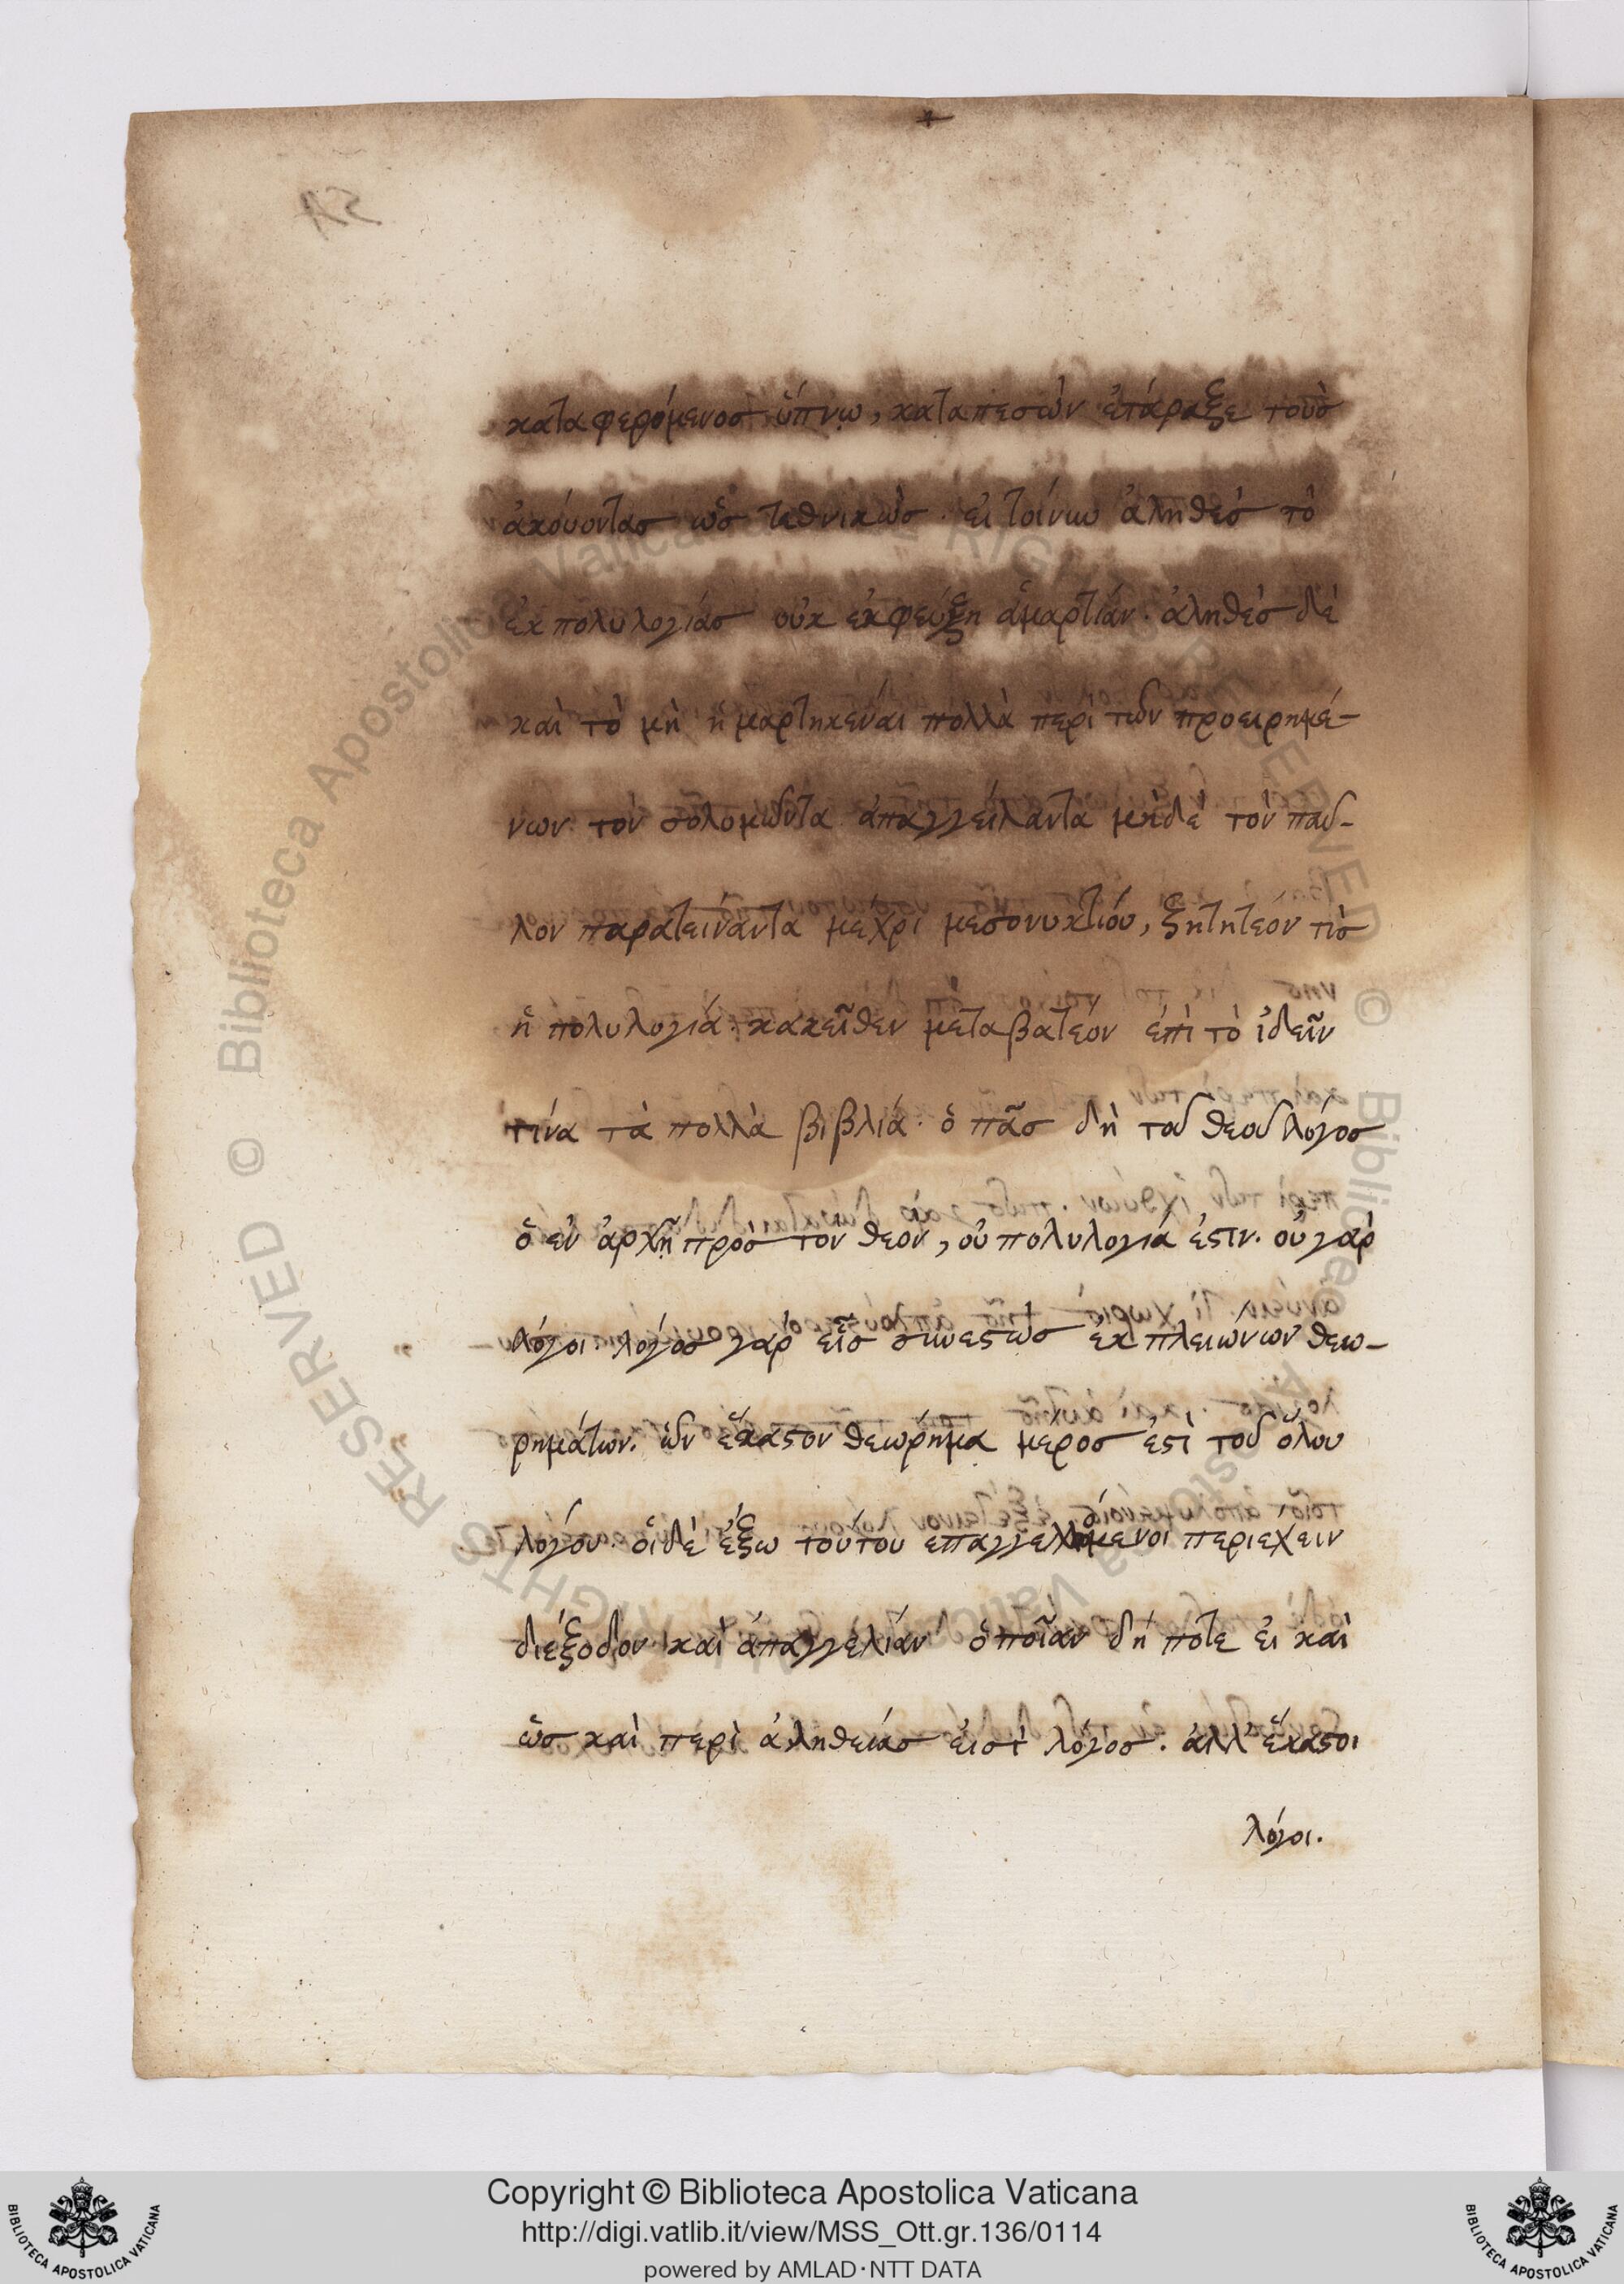 καταφερόμενος ὕπνῳ, καταπεσὼν ἐτάραξε τοὺς
ἀκούοντας ὡς τεθνικὼς. εἰ τοίνυν ἀληθὲς τὸ
ἐκ πολυλογίας οὐκ ἐκφεύξῃ ἁμαρτίαν. ἀληθὲς δὲ
καὶ τὸ μὴ ἡμαρτηκέναι πολλὰ περὶ τῶν προειρημέ-
νων τὸν σολομῶντα ἀπαγγείλαντα μηδὲ τὸν παῦ-
λον παρατείναντα μέχρι μεσονυκτίου, ζητητέον τίς
ἡ πολυλογία. κακεῖθεν μεταβατέον ἐπὶ τὸ ἰδεῖν
τίνα τὰ πολλὰ βιβλία. ὁ πᾶς δὴ τοῦ θεοῦ λόγος
ὁ ἐν ἀρχῇ προς τὸν θεὸν, οὐ πολυλογία ἐστιν. οὐ γὰρ
λόγοι. λόγος γὰρ εἷς συνεστὼς ἐκ πλειώνων θεω-
ρημάτων. ὧν ἕκαστον θεώρημα μέρος ἐστὶ τοῦ ὅλου
λόγου. οἱ δὲ ἔξω τούτου ἐπαγγελλόμενοι περιέχειν
διέξοδον καὶ ἀπαγγελίαν ὁποῖαν δή ποτε εἰ καὶ
ὡς καὶ περὶ ἀληθείας εἰσὶ λόγος. ἀλλ' ἕκαστοι
λόγοι.
Copyright © Biblioteca Apostolica Vaticana
http://digi.vatlib.it/view/MSS_Ott.gr.136/0114
powered by AMLAD·NTT DATA